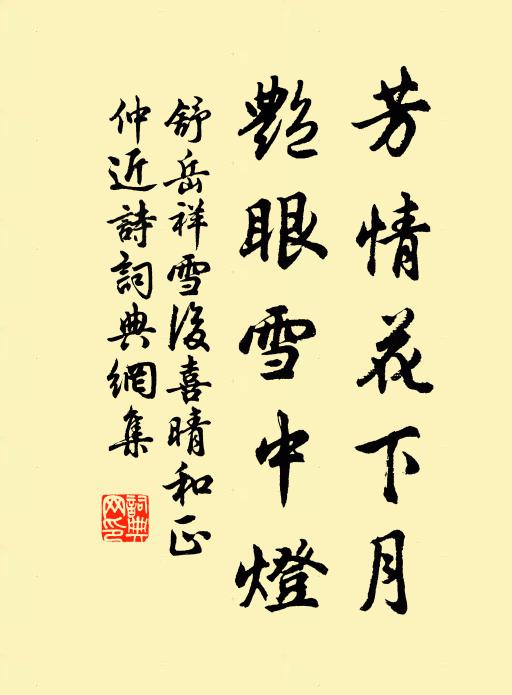 芳情花下月
艷眼雪中燈
舒岳祥雪後喜晴和正
仲近詩詞典網集
詞典網印